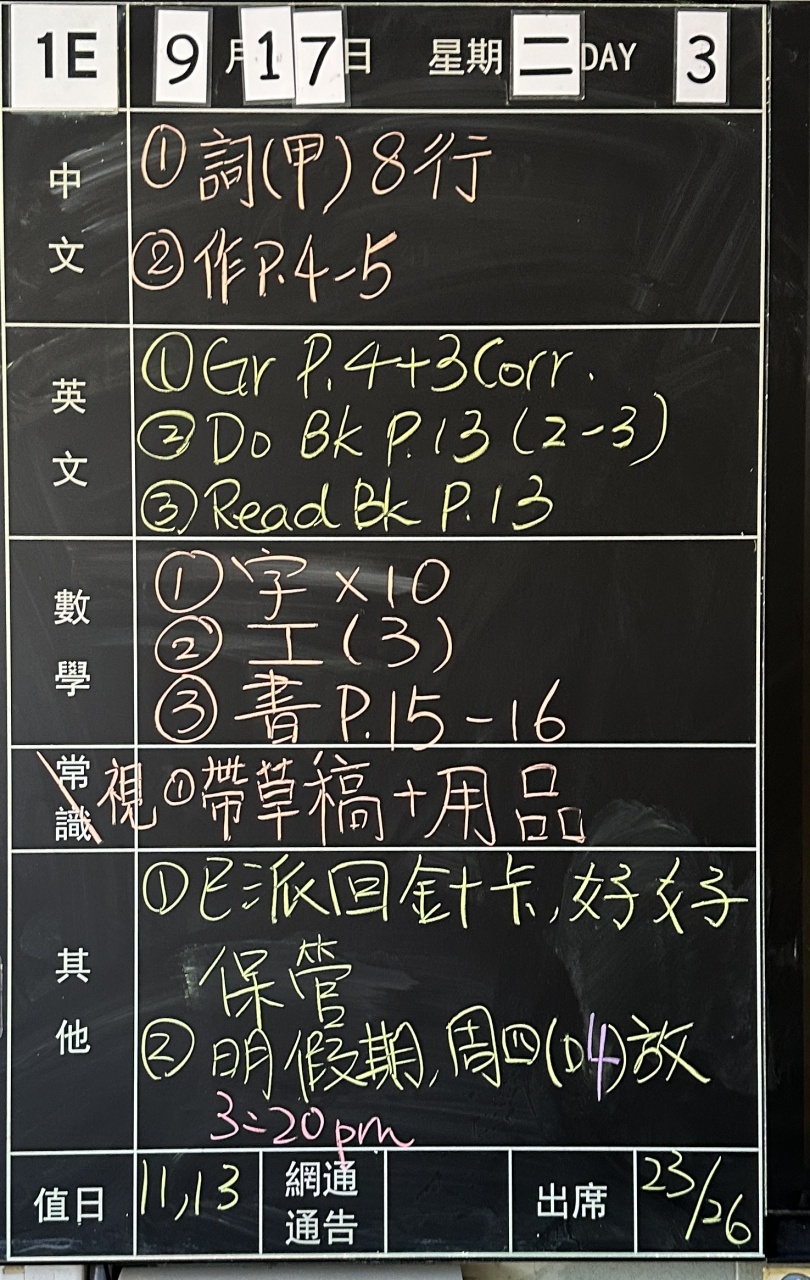 1E 9月17日 星期二 DAY 3
中文
①詞(甲)8行
②作P.4-5
英文
①Gr P.4+3Corr.
②Do Bk P.13(2-3)
③Read Bk P.13
數學
①字×10
②工(3)
③書P.15-16
常識
視①帶草稿+用品
其他
①已派回針卡,好好
保管
②明假期,周四(D4)放
3:20pm
值日 11,13 網通通告 出席 23/26